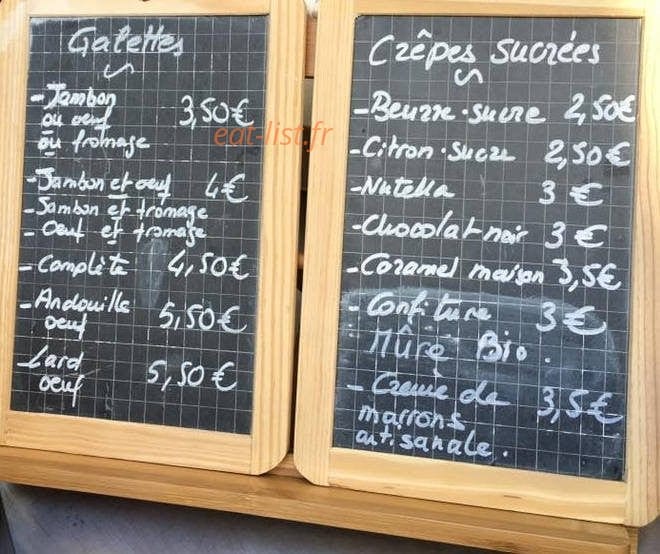 Galettes
- Jambon 3,50€
ou oeuf
ou fromage
- Jambon et oeuf 4€
- Jambon et fromage
- Oeuf et fromage
- Complète 4,50€
- Andouille 5,50€
oeuf
- Lard 5,50€
oeuf
Crêpes sucrées
- Beurre.sucre 2,50€
- Citron.sucre 2,50€
- Nutella 3€
- Chocolat noir 3€
- Caramel maison 3,5€
- Confiture 3€
Mûre Bio.
- Creme de 3,5€
marrons
artisanale.
eat-list.fr